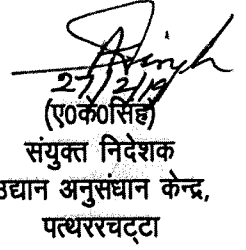 Asingh
27/2/19
(ए०के०सिंह)
संयुक्त निदेशक
उद्यान अनुसंधान केन्द्र,
पत्थररचट्टा